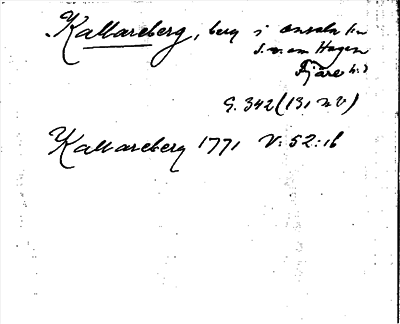 Kallareberg, berg i Onsala sn
S. v. om Hagen
Fjäre hd
G. 342 (131 n. V)
Kallareberg 1771 V: 52:16